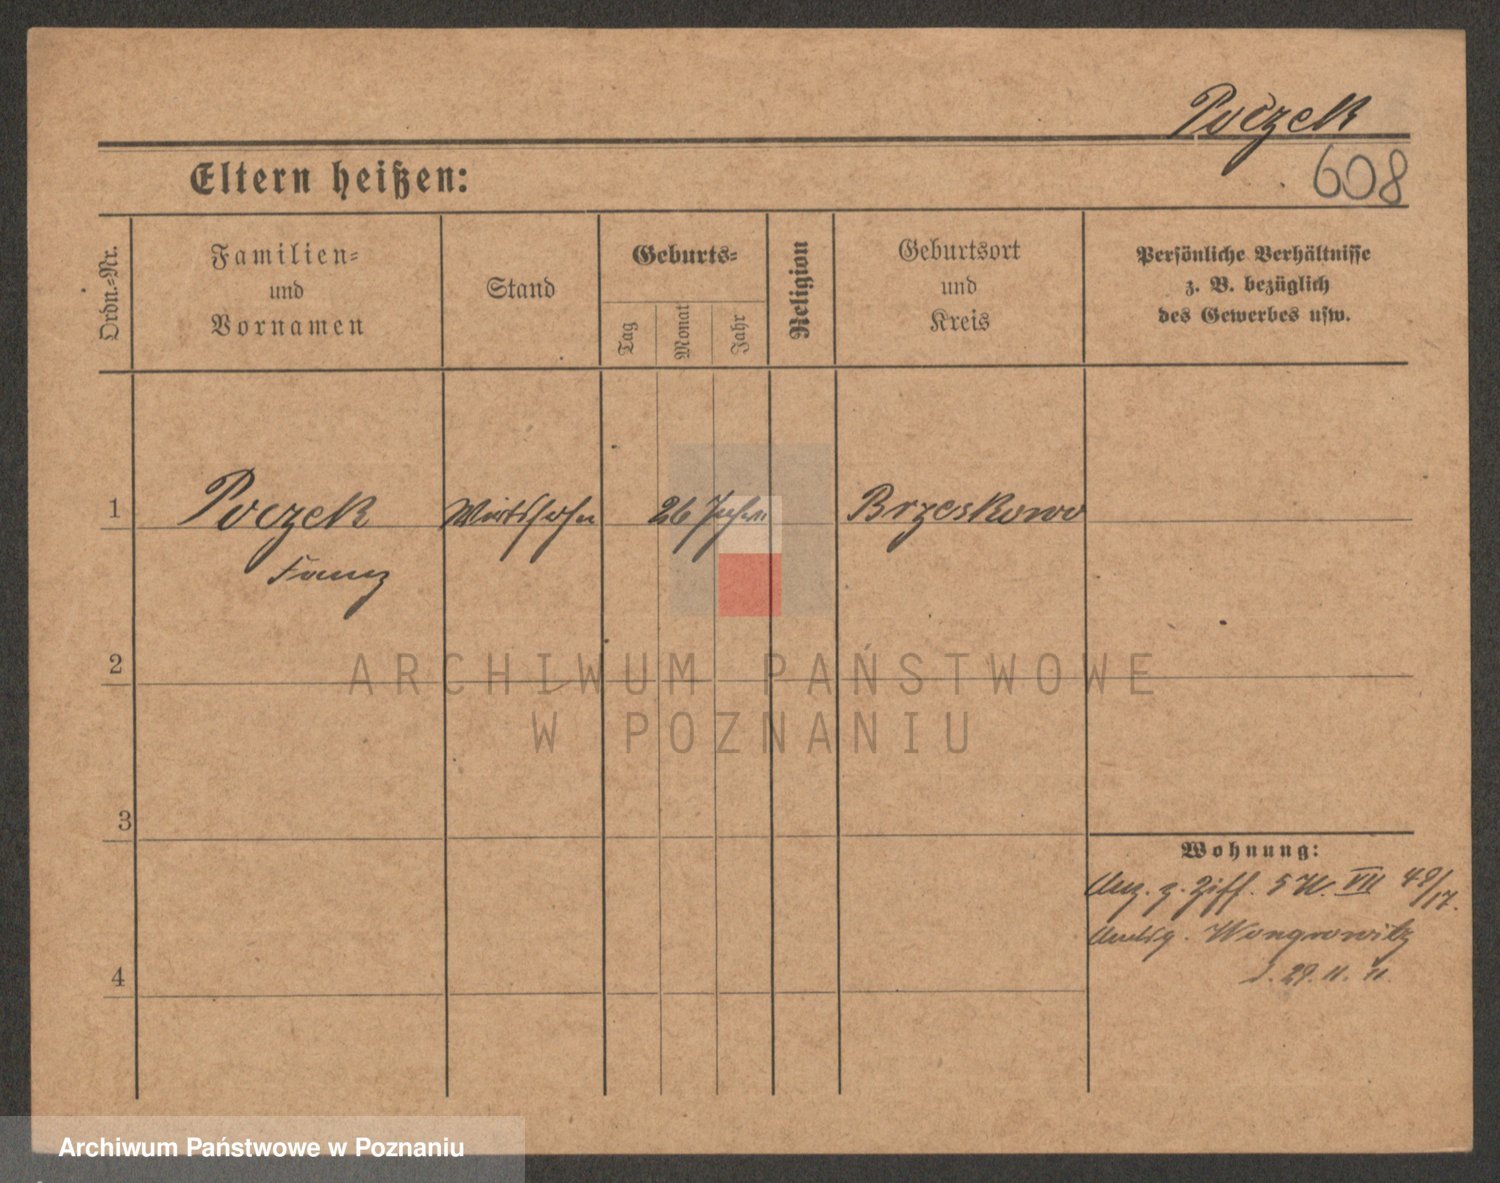 Poczek
608
Eltern heißen:
Ordn.-Nr.
Familien-
und
Vornamen
Stand
Geburts-
Tag
Monat
Jahr
Religion
Geburtsort
und
Kreis
Persönliche Verhältnisse
z. B. bezüglich
des Gewerbes usw.
1
Poczek
Wirtssohn
26 Jahre
Brzeskowo
Franz
2
ARCHIWUM PAŃSTWOWE
W POZNANIU
3
Wohnung:
z. Ziff. VIII 49/17.
Wongrowitz
4
d. 29. 11. 11.
Archiwum Państwowe w Poznaniu